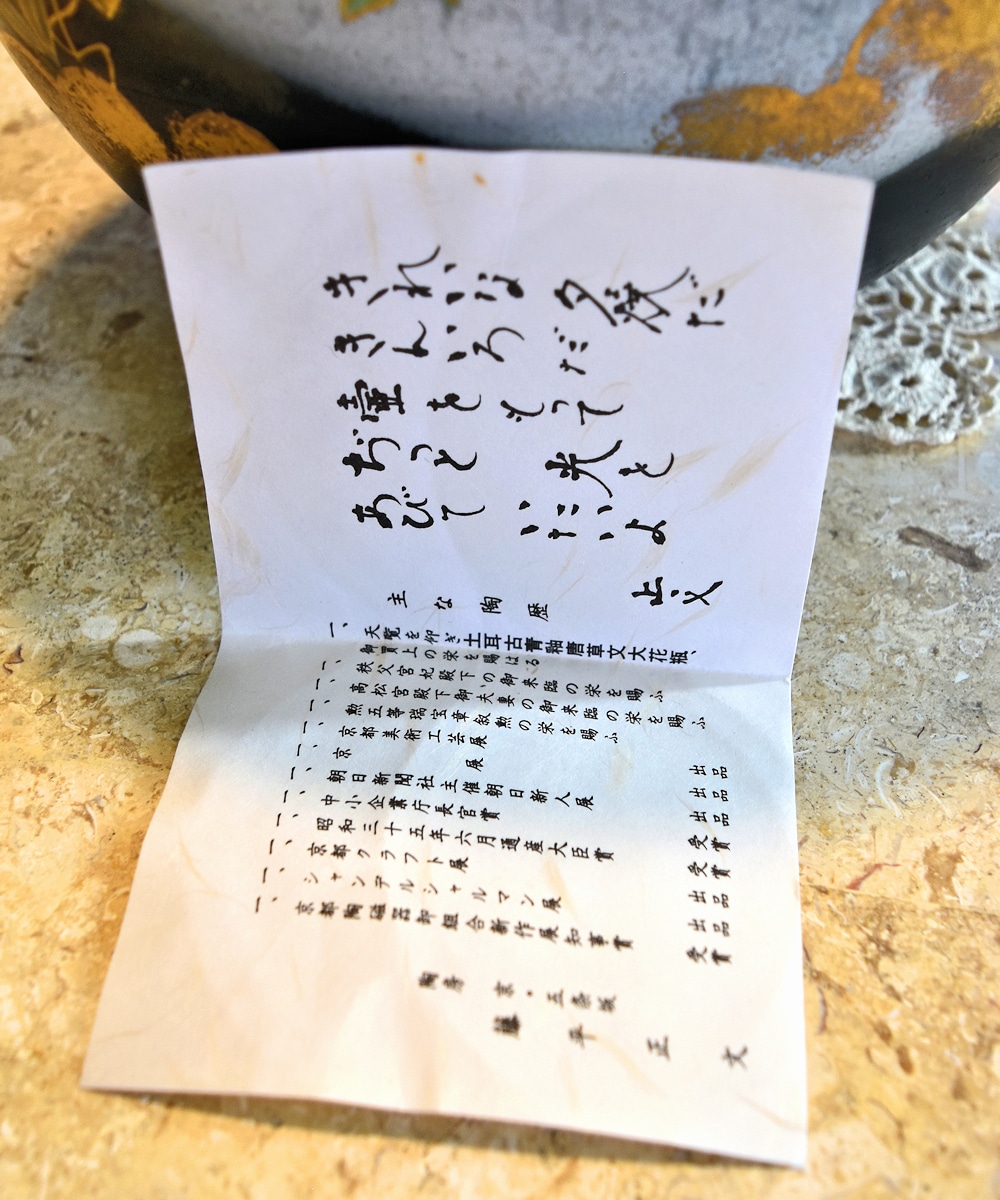 きれいな 夕焼だ
きんいろ だ
壷をもって
ぢっと 光を
あびて いたいよ
正文
主な陶歴
一、天覧を仰ぎ土耳古青釉唐草文大花瓶、
御買上の栄を賜はる
一、秩父宮妃殿下の御来臨の栄を賜ふ
一、高松宮殿下御夫妻の御来臨の栄を賜ふ
一、勲五等瑞宝章叙勲の栄を賜ふ
一、京都美術工芸展 出品
一、京展 出品
一、朝日新聞社主催朝日新人展 出品
一、中小企業庁長官賞 受賞
一、昭和三十五年六月通産大臣賞 受賞
一、京都クラフト展 出品
一、シャンデルシャルマン展 出品
一、京都陶磁器卸組合新作展知事賞 受賞
陶房 京・五条坂
藤平正文